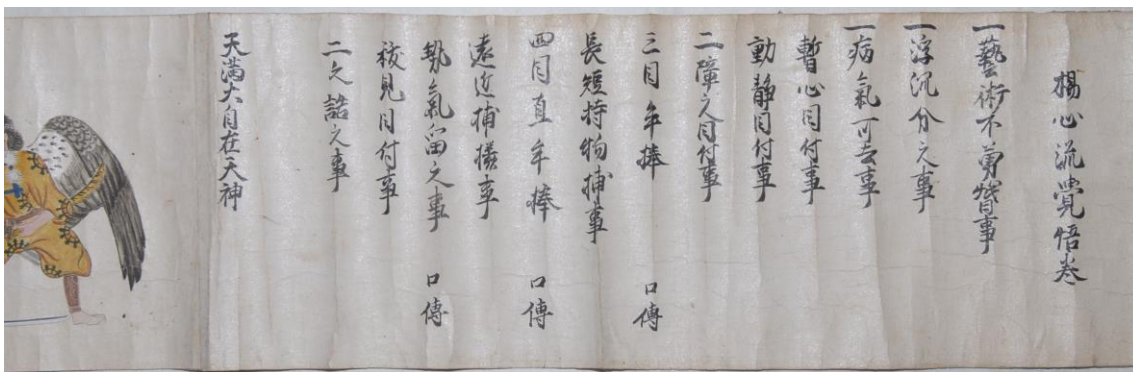 楊心流覺悟巻
一藝術不萬贅事
一浮沉分之事
一病氣可去事
暫心目付事
動静目付事
二障之目付事
三目牟捧 口傳
長短持物捕事
四目直牟捧 口傳
遠近捕様事
勢氣留之事 口傳
核見目付事
二久詰之事
天満大自在天神